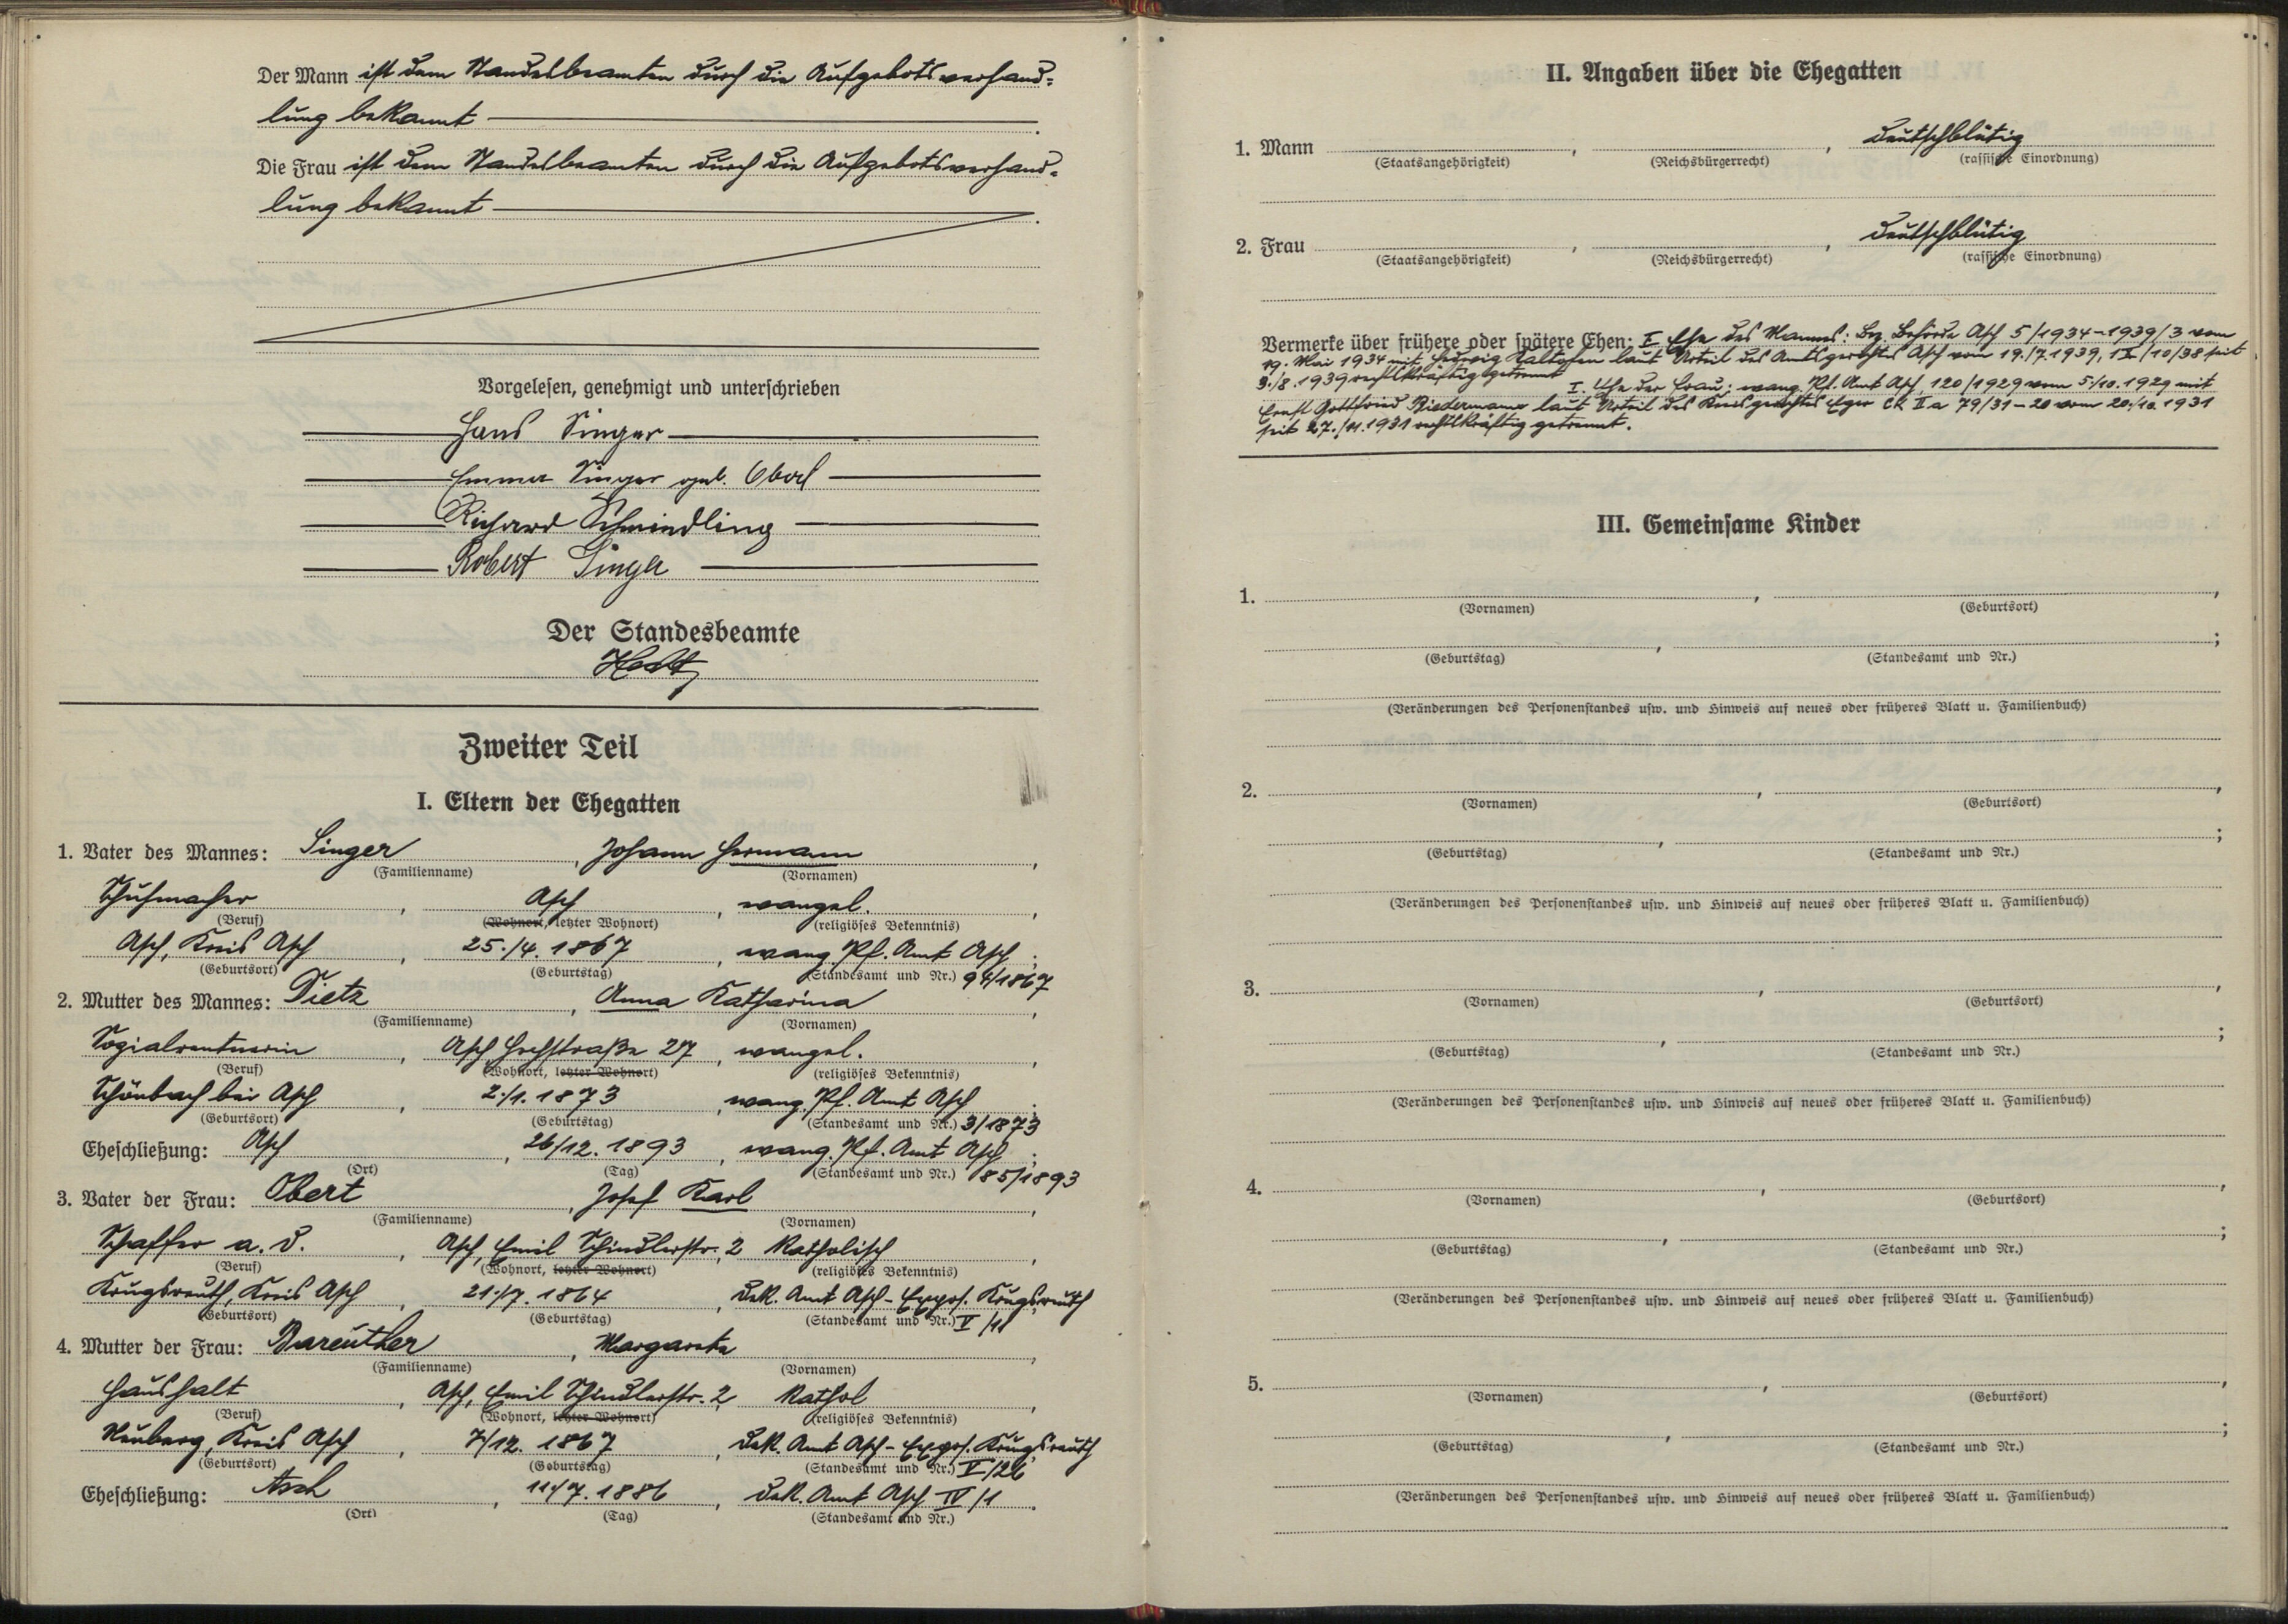 Der Mann ist dem Standesbeamten durch die Aufgebotsverhand-
lung bekannt
Die Frau ist dem Standesbeamten durch die Aufgebotsverhand-
lung bekannt
Vorgelesen, genehmigt und unterschrieben
Hans Singer
Emma Singer geb. Obert
Richard Schmindling
Robert Singer
Der Standesbeamte
Zweiter Teil
I. Eltern der Ehegatten
1. Vater des Mannes: Singer, Johann Hermann,
(Familienname) (Vornamen)
Schuhmacher, Asch, evangel.,
(Beruf) (Wohnort, letzter Wohnort) (religiöses Bekenntnis)
Asch, Kreis Asch, 25./4. 1867, evang. Pf. Amt Asch;
(Geburtsort) (Geburtstag) (Standesamt und Nr.) 94/1867
2. Mutter des Mannes: Dietz, Anna Katharina,
(Familienname) (Vornamen)
Sozialrentnerin, Asch, Hochstraße 27, evangel.,
(Beruf) (Wohnort, letzter Wohnort) (religiöses Bekenntnis)
Schönbach bei Asch, 2./1. 1873, evang. Pf. Amt Asch;
(Geburtsort) (Geburtstag) (Standesamt und Nr.) 3/1873
Eheschließung: Asch, 26/12. 1893, evang. Pf. Amt Asch;
(Ort) (Tag) (Standesamt und Nr.) 85/1893
3. Vater der Frau: Obert, Josef Karl,
(Familienname) (Vornamen)
Schaffer a. D., Asch, Emil Schindlerstr. 2 katholisch,
(Beruf) (Wohnort, letzter Wohnort) (religiöses Bekenntnis)
Krugsreuth, Kreis Asch, 21./7. 1864, Dek. Amt Asch - Expos. Krugsreuth
(Geburtsort) (Geburtstag) (Standesamt und Nr.) V/11
4. Mutter der Frau: Bareuther, Margareta,
(Familienname) (Vornamen)
Haushalt, Asch, Emil Schindlerstr. 2 kathol,
(Beruf) (Wohnort, letzter Wohnort) (religiöses Bekenntnis)
Neuberg, Kreis Asch, 7/12. 1867, Dek. Amt Asch - Expos. Krugsreuth
(Geburtsort) (Geburtstag) (Standesamt und Nr.) V/26
Eheschließung: Asch, 11/7. 1886, Dek. Amt Asch IV/1.
(Ort) (Tag) (Standesamt und Nr.)
II. Angaben über die Ehegatten
1. Mann , , deutschblütig
(Staatsangehörigkeit) (Reichsbürgerrecht) (rassische Einordnung)
2. Frau , , deutschblütig
(Staatsangehörigkeit) (Reichsbürgerrecht) (rassische Einordnung)
Vermerke über frühere oder spätere Ehen: I. Ehe des Mannes: Bez. Behörde Asch 5/1934-1939/3 vom
19. Mai 1934 mit Hedwig Kaltofen laut Urteil des Amtsgerichtes Asch vom 19./7. 1939, 1 /10/38 seit
3./8. 1939 rechtskräftig getrennt
I. Ehe der Frau: evang. Pf. Amt Asch, 120/1929 vom 5./10. 1929 mit
Ernst Gottfried Biedermann laut Urteil des Kreisgerichtes Eger Ck II a 79/31-20 vom 20./10. 1931
seit 27./11. 1931 rechtskräftig getrennt.
III. Gemeinsame Kinder
1. , ,
(Vornamen) (Geburtsort)
, ;
(Geburtstag) (Standesamt und Nr.)
(Veränderungen des Personenstandes usw. und Hinweis auf neues oder früheres Blatt u. Familienbuch)
2. , ,
(Vornamen) (Geburtsort)
, ;
(Geburtstag) (Standesamt und Nr.)
(Veränderungen des Personenstandes usw. und Hinweis auf neues oder früheres Blatt u. Familienbuch)
3. , ,
(Vornamen) (Geburtsort)
, ;
(Geburtstag) (Standesamt und Nr.)
(Veränderungen des Personenstandes usw. und Hinweis auf neues oder früheres Blatt u. Familienbuch)
4. , ,
(Vornamen) (Geburtsort)
, ;
(Geburtstag) (Standesamt und Nr.)
(Veränderungen des Personenstandes usw. und Hinweis auf neues oder früheres Blatt u. Familienbuch)
5. , ,
(Vornamen) (Geburtsort)
, ;
(Geburtstag) (Standesamt und Nr.)
(Veränderungen des Personenstandes usw. und Hinweis auf neues oder früheres Blatt u. Familienbuch)